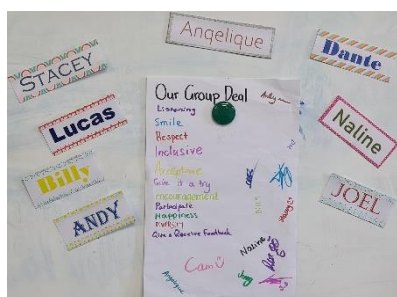 Angelique
Dante
STACEY
Lucas
Naline
Billy
JOEL
ANDY
Our Group Deal
Listening
Smile
Respect
Inclusive
Acceptance
Give it a try
encouragement
Participate
Happiness
Give & Receive Feedback
Naline
Cam
Angelique